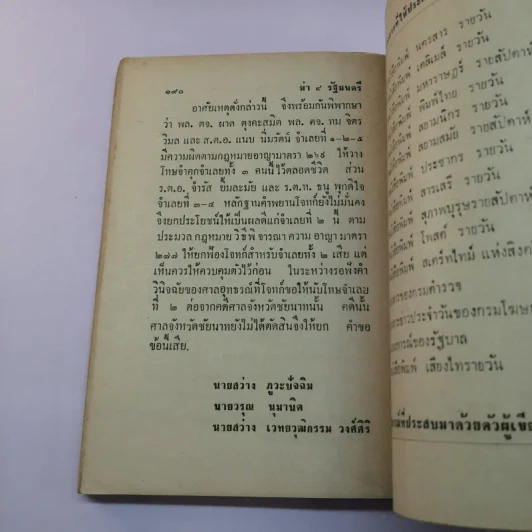 ๑๙๐
ฆ่า ๔ รัฐมนตรี
อาศัยเหตุดั่งกล่าวนี้ จึงพร้อมกันพิพากษา
ว่า พล. ตจ. ผาด ตุงคะสมิต พล. ตจ. ทม จิตร
วิมล และ ส.ต.อ. แนบ นิ่มรัตน์ จำเลยที่ ๑-๒-๕
มีความผิดตามกฎหมายอาญามาตรา ๒๔๙ ให้วาง
โทษจำคุกจำเลยทั้ง ๓ คนนี้ไว้ตลอดชีวิต ส่วน
ร.ต.อ. จำรัส ยิ้มละมัย และ ร.ต.ท. ธนู พุกใจดี
จำเลยที่ ๓-๔ หลักฐานคำพยานโจทก์ยังไม่มั่นคง
จึงยกประโยชน์ให้เป็นผลดีแก่จำเลยที่ ๒ นี้ ตาม
ประมวล กฎหมาย วิธีพิจารณา ความ อาญา มาตรา
๒๗๗ ให้ยกฟ้องโจทก์สำหรับจำเลยทั้ง ๒ เสีย แต่
เห็นควรให้ควบคุมตัวไว้ก่อน ในระหว่างรอฟังคำ
วินิจฉัยของศาลอุทธรณ์ที่โจทก์ขอให้นับโทษจำเลย
ที่ ๒ ต่อจากคดีศาลจังหวัดชัยนาทนั้น คดีนั้น
ศาลจังหวัดชัยนาทยังไม่ได้ตัดสินจึงให้ยก คำขอ
ข้อนี้เสีย.
นายสว่าง ภูวะปัจฉิม
นายวรุณ นุมานิต
นายสว่าง เวทยวุฒิกรรม วงศ์ศิริ
นครสาร รายวัน
เดลิเมล์ รายวัน
มหาราษฎร์ รายสัปดาห์
พิมพ์ไทย รายวัน
สยามนิกร รายวัน
สยามสมัย รายสัปดาห์
ประชากร รายวัน
สารเสรี รายวัน
สุภาพบุรุษรายสัปดาห์
โพสต์ รายวัน
สเตร็ทไทม์ แห่งสิงค
ของกรมตำรวจ
ข่าวประจำวันของกรมโฆษ
ของรัฐบาล
เสียงไทรายวัน
ที่ประสบมาด้วยตัวผู้เขีย